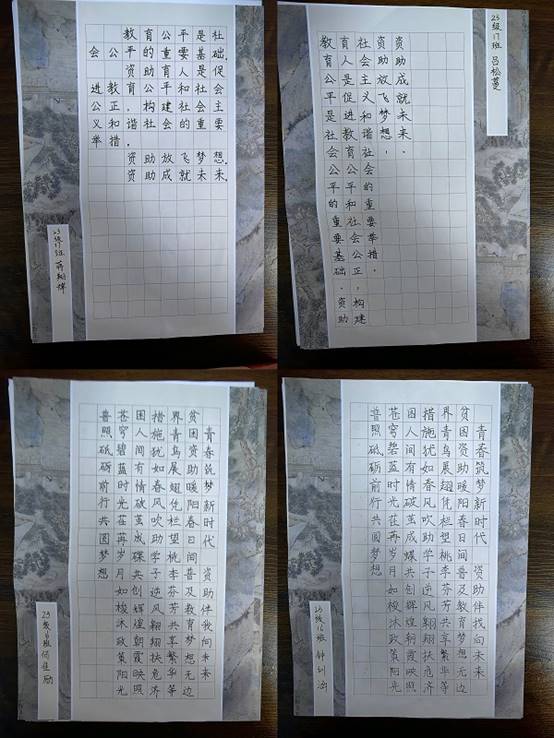 教育公平是社
会公平的重要基础.
资助育人是促
进教育公平和社会
公正,构建社会主
义和谐社会的重要
举措.
资助放飞梦想.
资助成就未来.
23级17班 蒋翔
23级17班 吕松蔓
教育公平是社会公平的重要基础。资助
育人是促进教育公平和社会公正,构建
社会主义和谐社会的重要举措。
资助放飞梦想,
资助成就未来。
青春筑梦新时代 资助伴我向未来
贫困资助暖阳春日间普及教育梦想无边
界青鸟展翅凭栏望桃李芬芳共享繁华等
措施犹如春风吹助学子逆风翱翔扶危济
困人间有情破茧成蝶共创辉煌朝霞映照
苍穹碧蓝时光荏苒岁月如梭沐政策阳光
普照砥砺前行共圆梦想
23级16班何佳励
青春筑梦新时代 资助伴我向未来
贫困资助暖阳春日间普及教育梦想无边
界青鸟展翅凭栏望桃李芬芳共享繁华等
措施犹如春风吹助学子逆风翱翔扶危济
困人间有情破茧成蝶共创辉煌朝霞映照
苍穹碧蓝时光荏苒岁月如梭沐政策阳光
普照砥砺前行共圆梦想
23级16班 钟钊